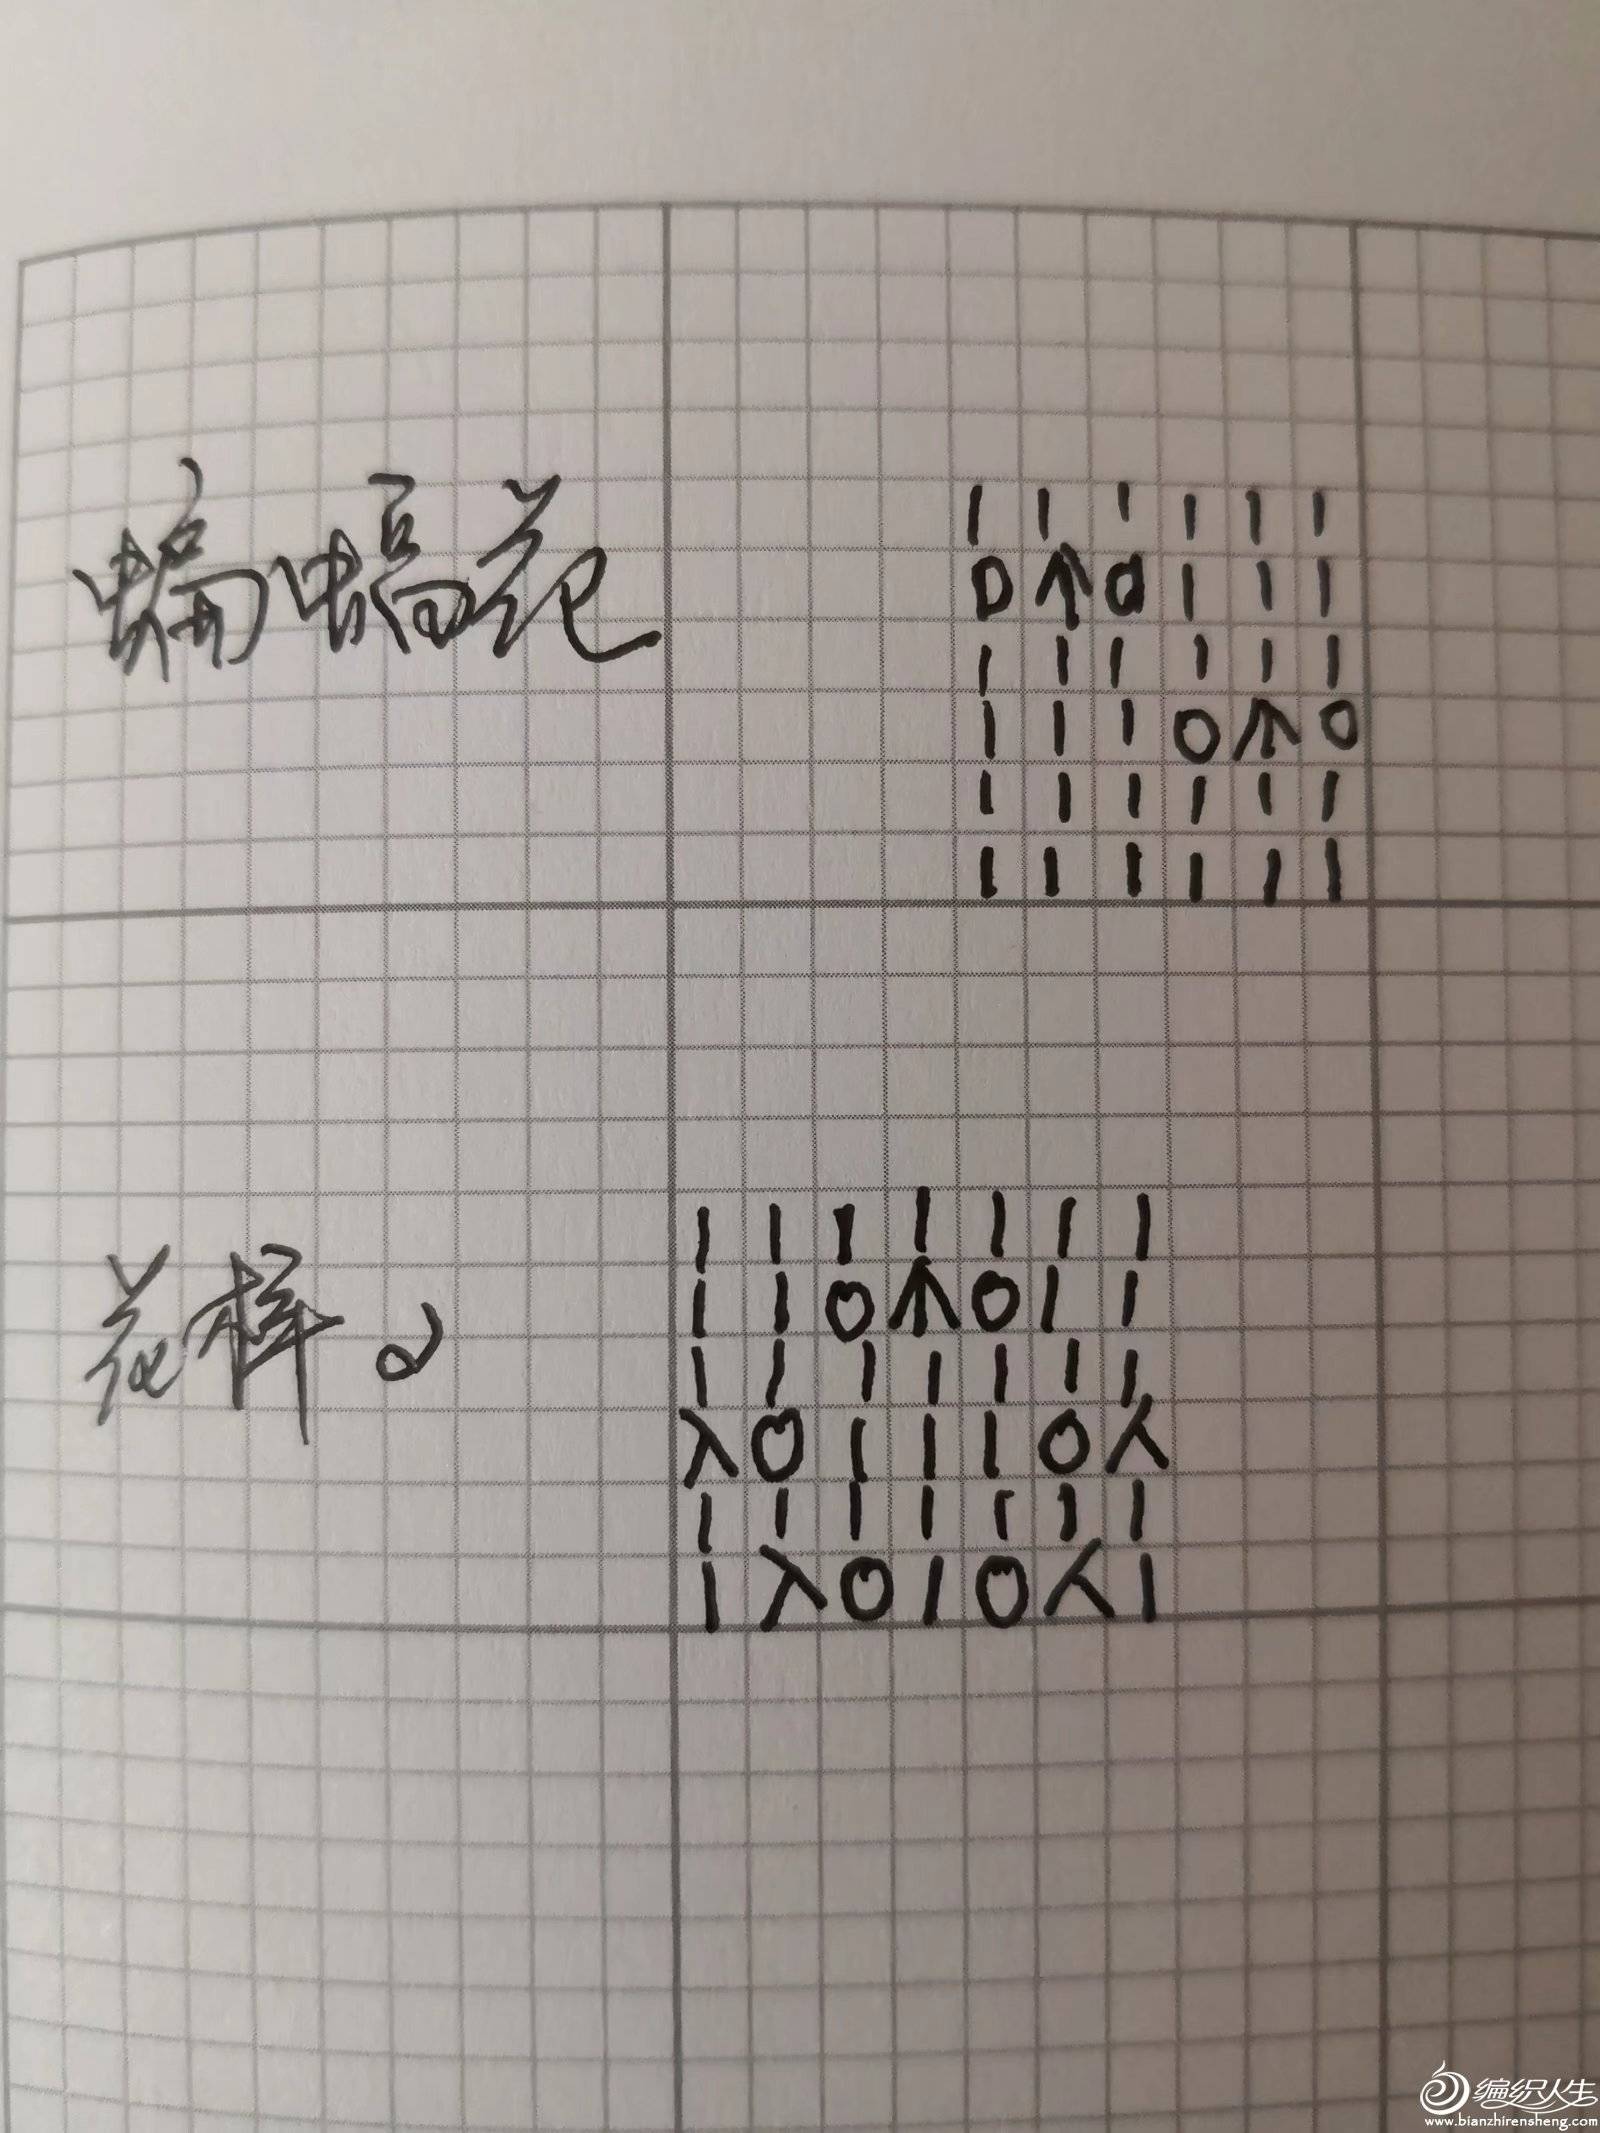 蝙蝠花
| | | | | |
O ↑ O | | |
| | | | | |
| | | O ↑ O
| | | | | |
| | | | | |
花样
| | | | | | |
| | O ↑ O | |
| | | | | | |
入 O | | | O 人
| | | | | | |
| 入 O | O 人 |
编织人生
www.bianzhirensheng.com